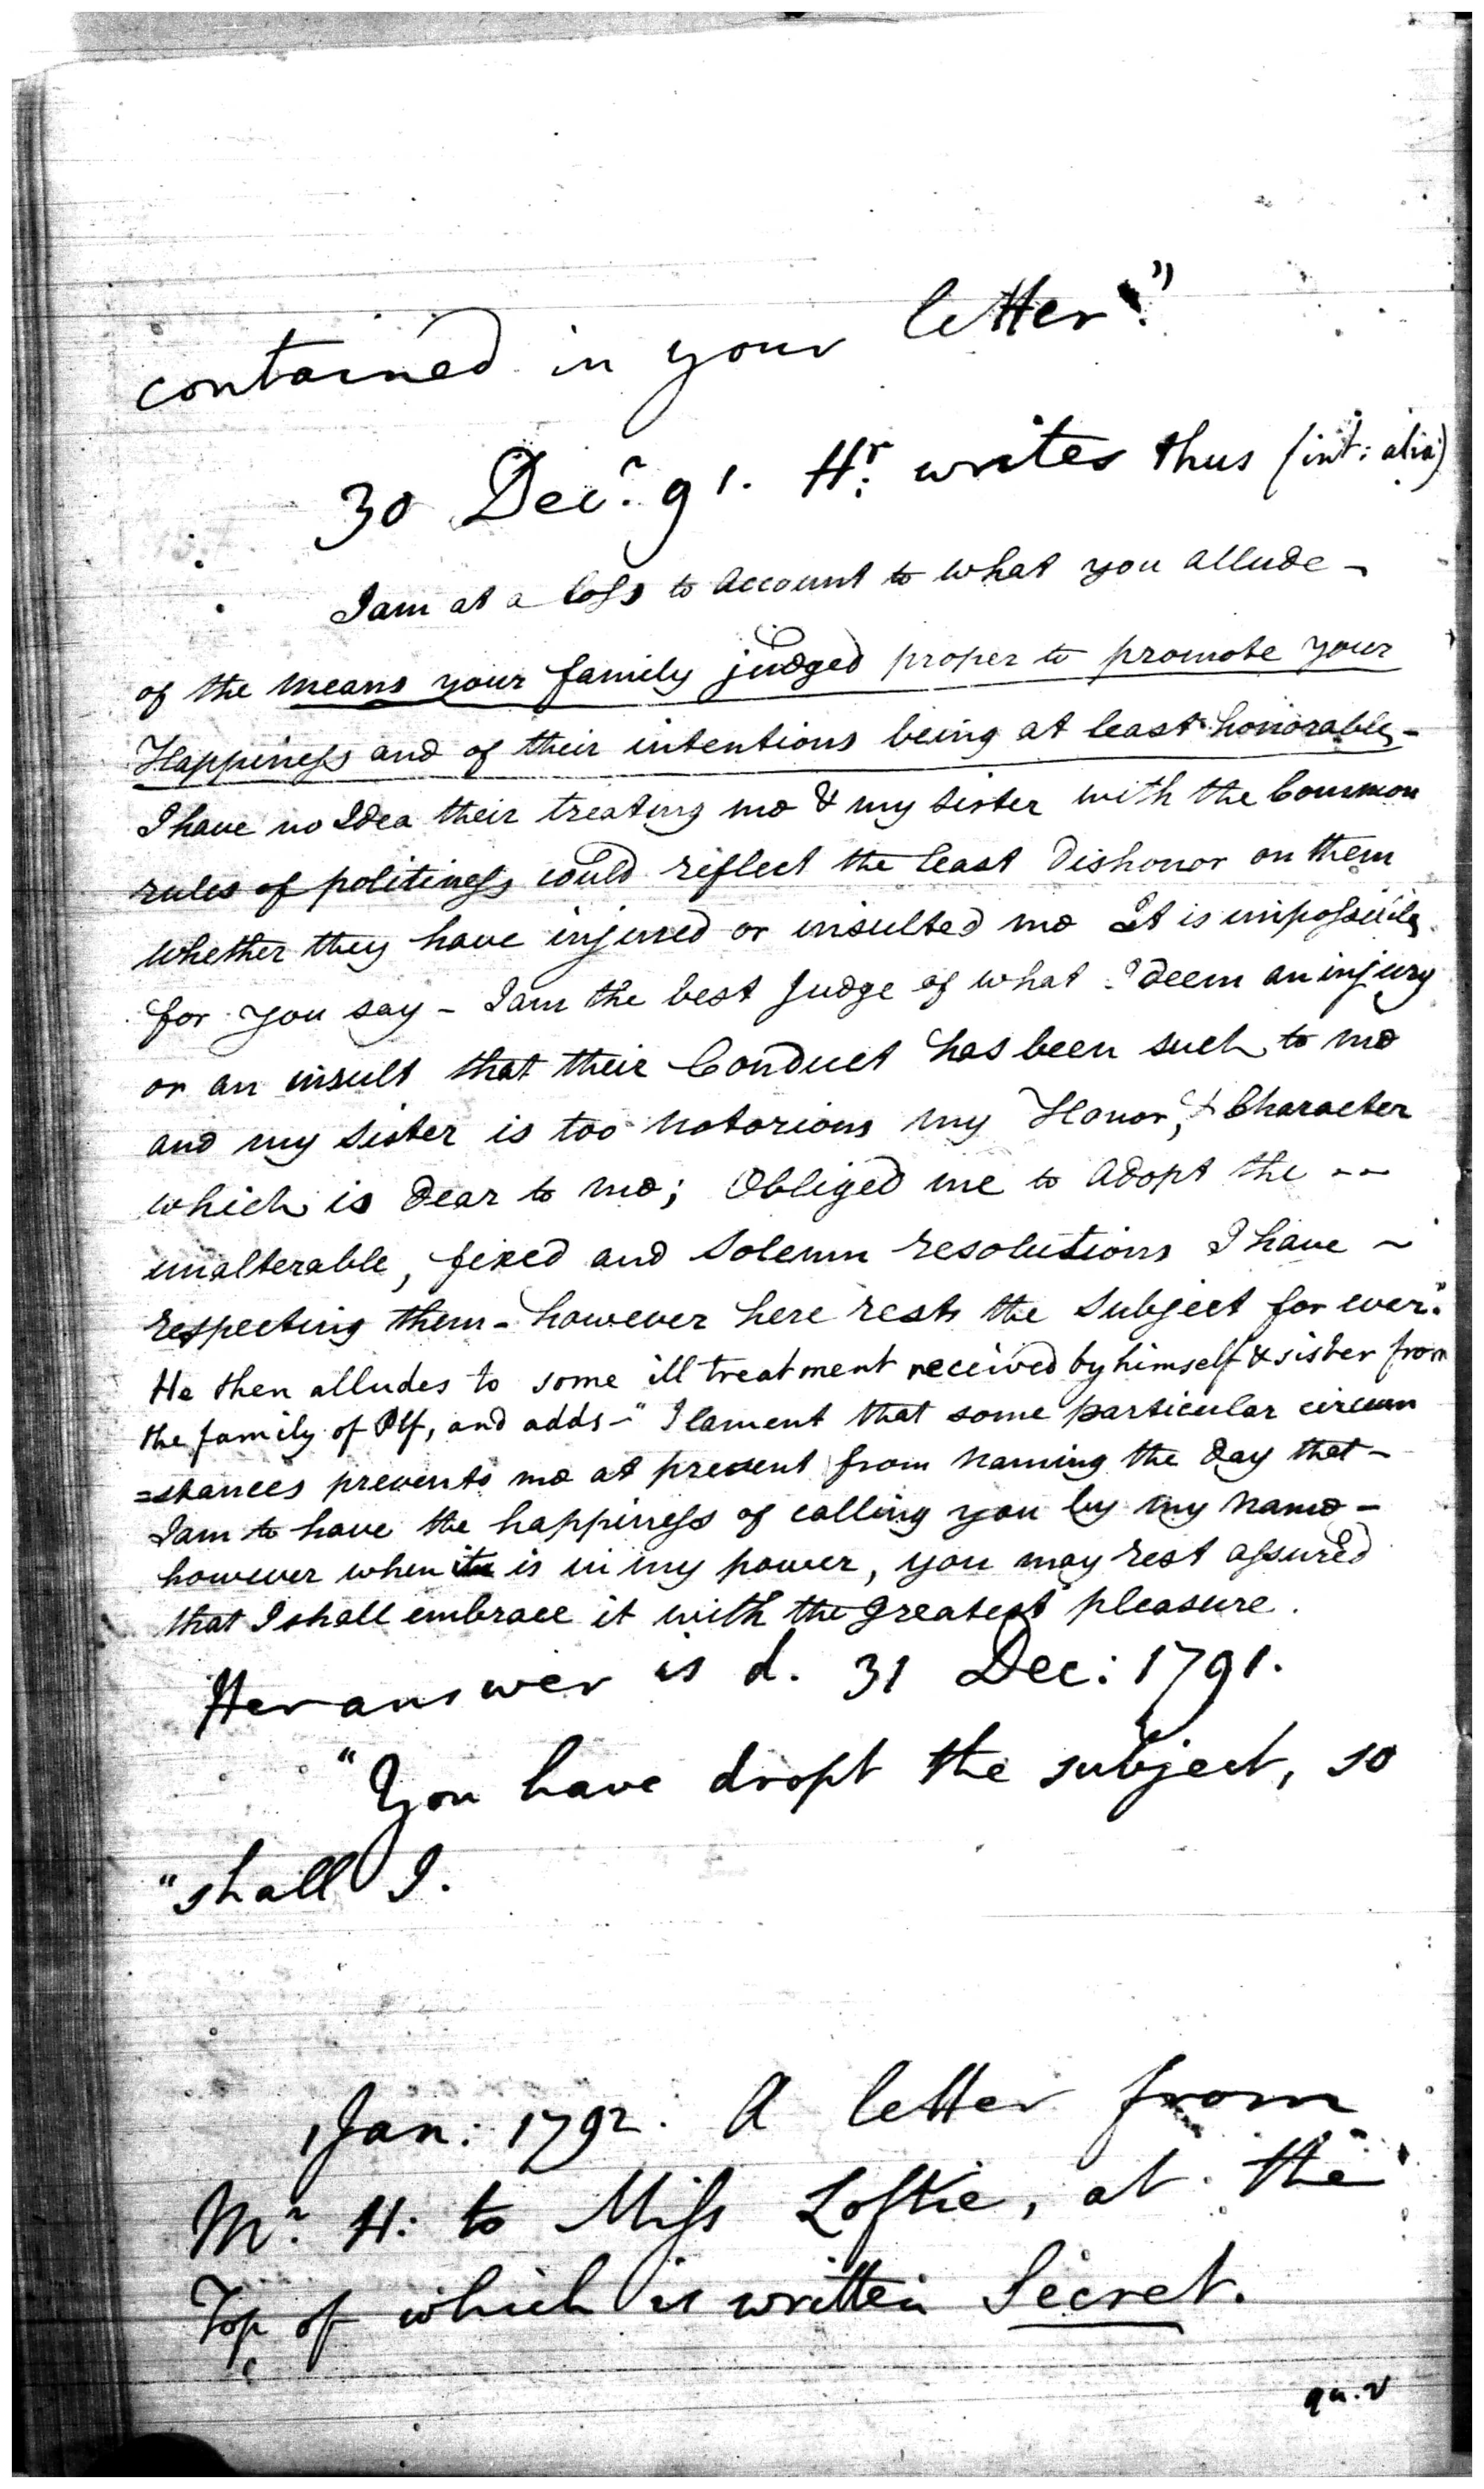 contained in your letter."
30 Decr. 91. Hr. writes thus (int: alia)
I am at a loss to account to what you allude -
of the means your family judged proper to promote your
Happiness and of their intentions being at least honorable, -
I have no Idea their treating me & my sister with the Common
rules of politiness could reflect the least Dishonor on them
whether they have injured or insulted me It is impossible
for you say - I am the best Judge of what I deem an injury
or an insult that their Conduct has been such to me
and my sister is too notorious my Honor, & Character
which is Dear to me; Obliged me to adopt the --
unalterable, fixed and solemn resolutions I have ~
respecting them - however here rests the subject for ever."
He then alludes to some ill treatment received by himself & sister from
the family of Plf, and adds - "I lament that some particular circum
=stances prevents me at present from naming the day that -
I am to have the happiness of calling you by my name -
however when it is in my power, you may rest assured
that I shall embrace it with the greatest pleasure.
Her answer is d. 31 Dec: 1791.
"You have dropt the subject, so
"shall I.
1 Jan: 1792. A letter from
Mr. H: to Miss Loftie, at the
Top of which is written Secret.